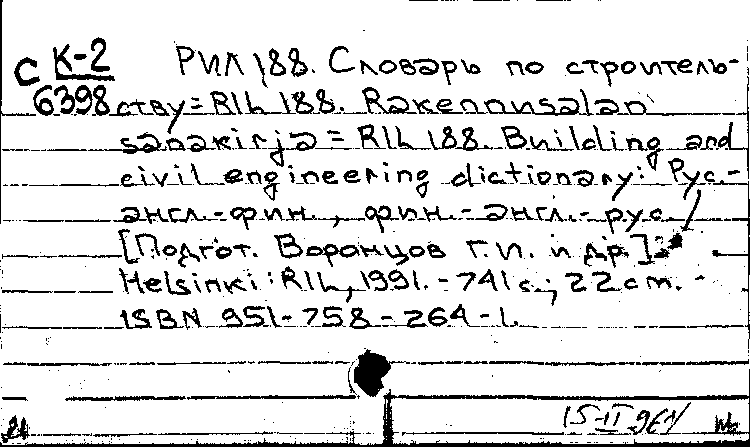 С К-2
6398
РИЛ 188. Словарь по строитель-
ству = RIL 188. Rakennusalan
sanakirja = RIL 188. Building and
civil engineering dictionary: Рус.-
англ.-фин., фин.-англ.-рус /
[Подгот. Воронцов Г.И. и др.].-
Helsinki: RIL, 1991. - 741 с.; 22 cm. -
ISBN 951-758-264-1.
21 15-II 961